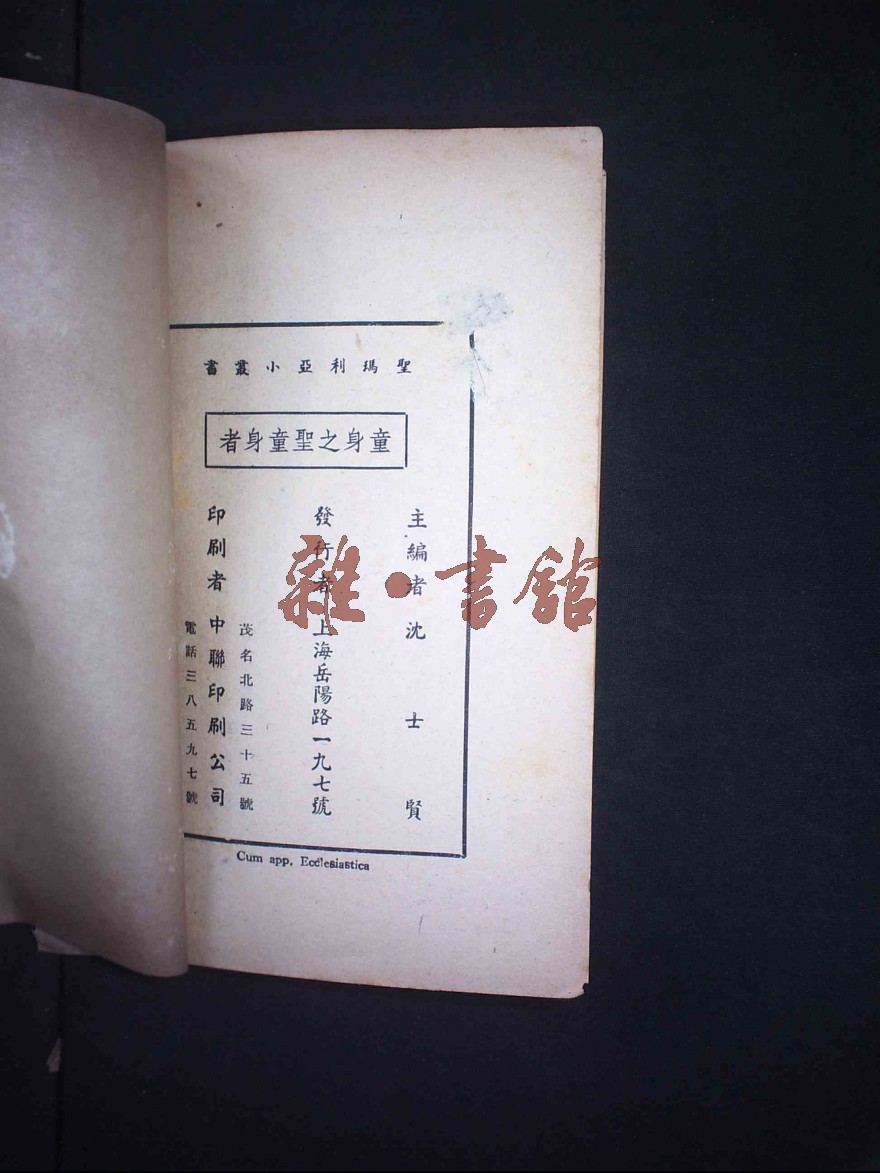 聖瑪利亞小叢書
童身之聖童身者
主編者 沈士賢
發行者 上海岳陽路一九七號
茂名北路三十五號
印刷者 中聯印刷公司
電話三八五九七號
Cum app. Ecclesiastica
雜·書館